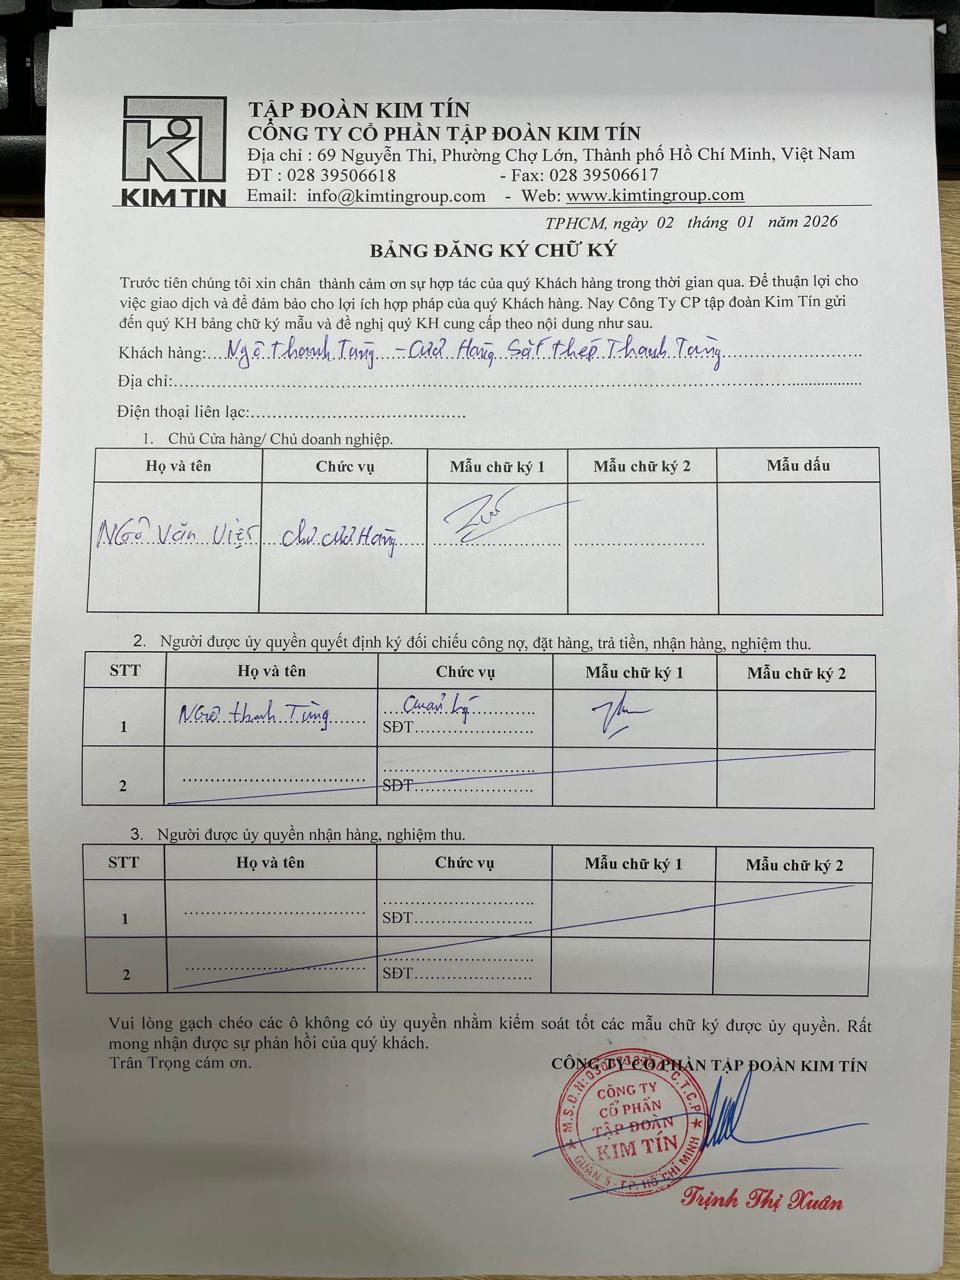 KIM TIN
TẬP ĐOÀN KIM TÍN
CÔNG TY CỔ PHẦN TẬP ĐOÀN KIM TÍN
Địa chỉ : 69 Nguyễn Thi, Phường Chợ Lớn, Thành phố Hồ Chí Minh, Việt Nam
ĐT : 028 39506618 - Fax: 028 39506617
Email: info@kimtingroup.com - Web: www.kimtingroup.com
TPHCM, ngày 02 tháng 01 năm 2026
BẢNG ĐĂNG KÝ CHỮ KÝ
Trước tiên chúng tôi xin chân thành cảm ơn sự hợp tác của quý Khách hàng trong thời gian qua. Để thuận lợi cho
việc giao dịch và để đảm bảo cho lợi ích hợp pháp của quý Khách hàng. Nay Công Ty CP tập đoàn Kim Tín gửi
đến quý KH bảng chữ ký mẫu và đề nghị quý KH cung cấp theo nội dung như sau.
Khách hàng:...Ngô Thanh Tùng - Cửa Hàng Sắt thép Thanh Tùng
Địa chỉ:
Điện thoại liên lạc:
1. Chủ Cửa hàng/ Chủ doanh nghiệp.
Họ và tên Chức vụ Mẫu chữ ký 1 Mẫu chữ ký 2 Mẫu dấu
Ngô Văn Việt Chủ cửa Hàng
2. Người được ủy quyền quyết định ký đối chiếu công nợ, đặt hàng, trả tiền, nhận hàng, nghiệm thu.
STT Họ và tên Chức vụ Mẫu chữ ký 1 Mẫu chữ ký 2
1 Ngô thanh Tùng Quản lý
SĐT
2 SĐT
3. Người được ủy quyền nhận hàng, nghiệm thu.
STT Họ và tên Chức vụ Mẫu chữ ký 1 Mẫu chữ ký 2
1 SĐT
2 SĐT
Vui lòng gạch chéo các ô không có ủy quyền nhằm kiểm soát tốt các mẫu chữ ký được ủy quyền. Rất
mong nhận được sự phản hồi của quý khách.
Trân Trọng cám ơn.
CÔNG TY CỔ PHẦN TẬP ĐOÀN KIM TÍN
CÔNG TY
CỔ PHẦN
TẬP ĐOÀN
KIM TÍN
QUẬN 5 - T.P. HỒ CHÍ MINH
Trịnh Thị Xuân